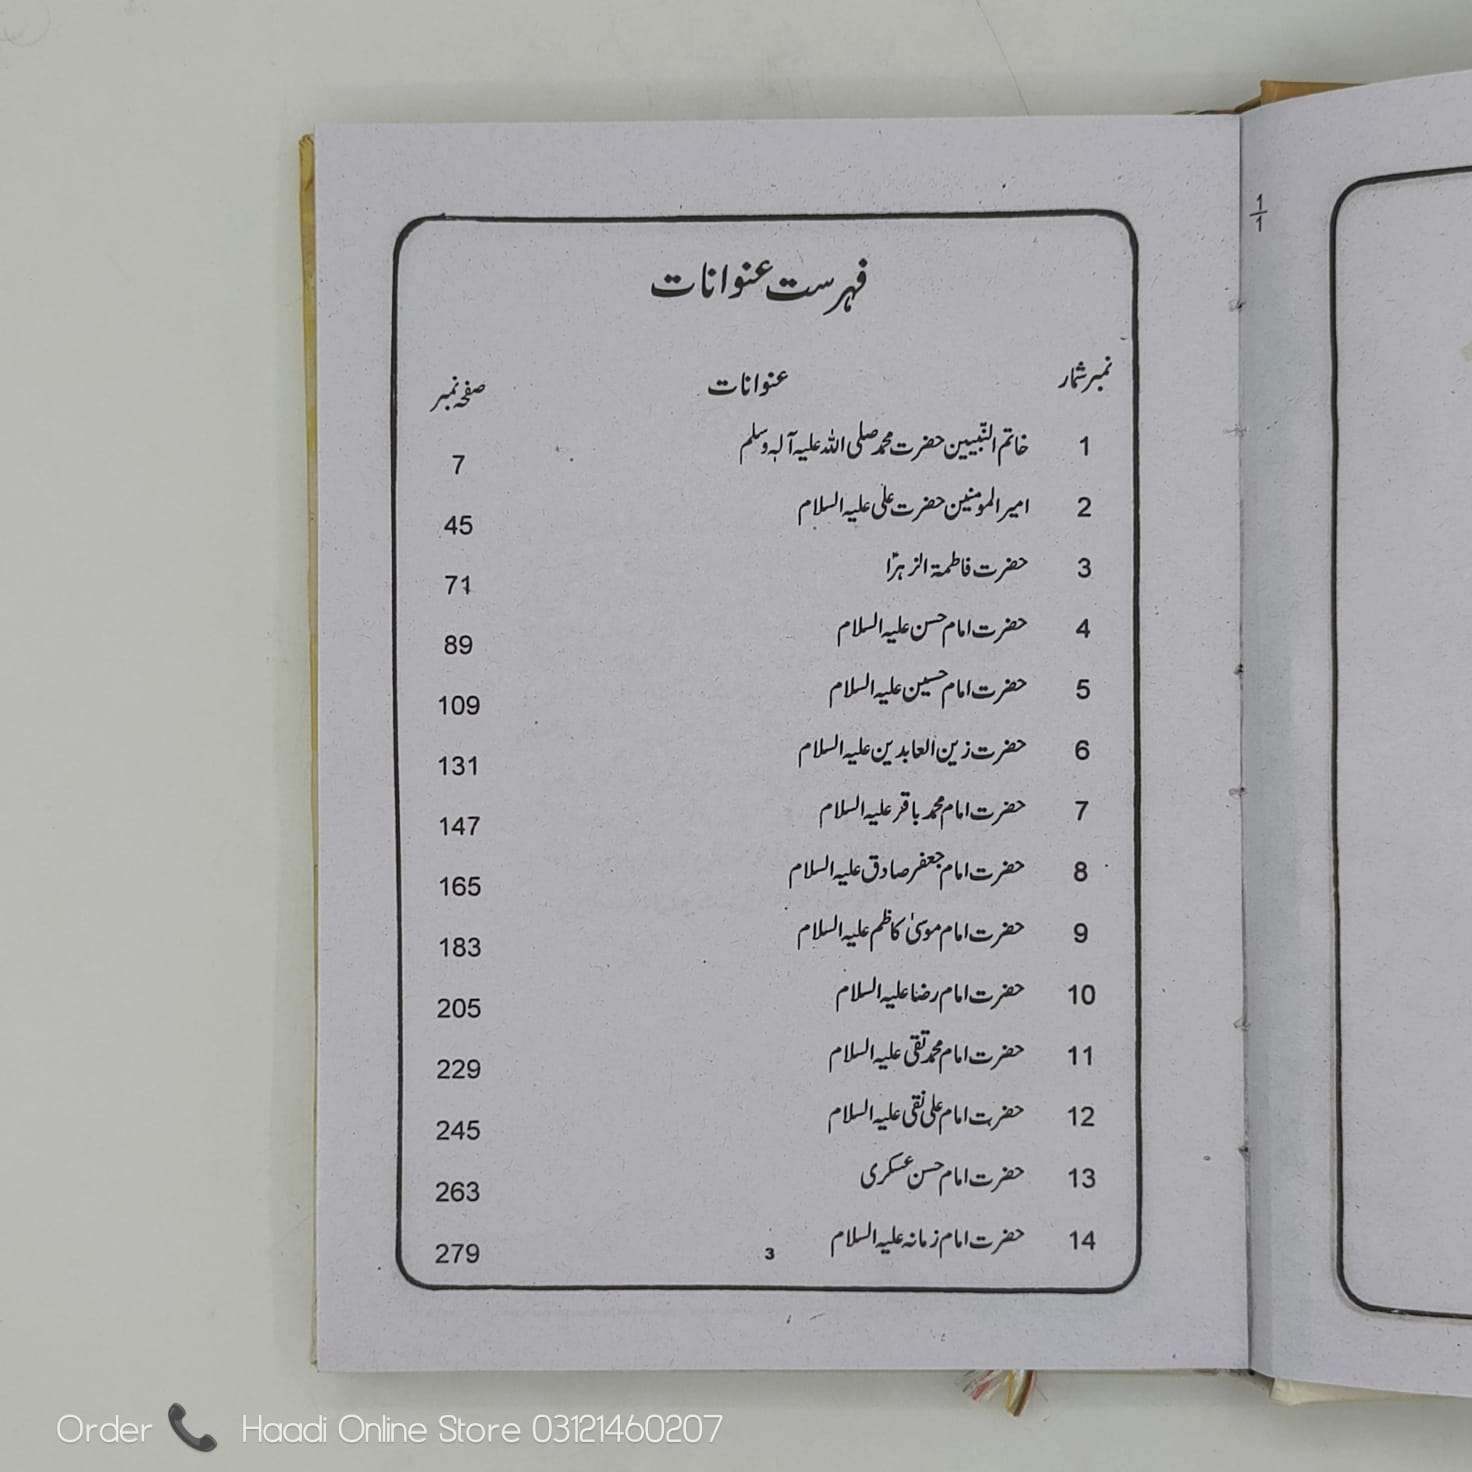 فہرست عنوانات
نمبر شمار عنوانات صفحہ نمبر
1 خاتم النّبیین حضرت محمد صلی اللہ علیہ آلہ وسلم 7
2 امیر المومنین حضرت علی علیہ السلام 45
3 حضرت فاطمۃ الزہراؑ 71
4 حضرت امام حسن علیہ السلام 89
5 حضرت امام حسین علیہ السلام 109
6 حضرت زین العابدین علیہ السلام 131
7 حضرت امام محمد باقر علیہ السلام 147
8 حضرت امام جعفر صادق علیہ السلام 165
9 حضرت امام موسیٰ کاظم علیہ السلام 183
10 حضرت امام رضا علیہ السلام 205
11 حضرت امام محمد تقی علیہ السلام 229
12 حضرت امام علی نقی علیہ السلام 245
13 حضرت امام حسن عسکری 263
14 حضرت امام زمانہ علیہ السلام 279
3
1
1
Order Haadi Online Store 03121460207